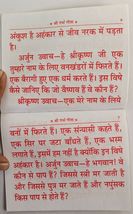 ❋ श्री गर्भ गीता ❋
अंकुश है अहंकार से जीव नरक में पड़ता
है।
अर्जुन उवाच-हे श्रीकृष्ण जी एक
तुम्हारे नाम के लिए वनखंडों में फिरते हैं।
एक बैरागी हुए एक धर्म करते हैं। इस विषे
कैसे जानिए कि जो वैष्णव हैं वे कौन है।
श्रीकृष्ण उवाच-एक मेरे नाम के लिये
❋ श्री गर्भ गीता ❋
वनों में फिरते हैं। एक संन्यासी कहते हैं,
एक सिर पर जटा बाँधते हैं, एक भस्म
लगाते हैं, इसमें हम नहीं हैं क्योंकि इन विषे
अहंकार है। अर्जुन उवाच-हे भगवान! वे
कौन से पाप हैं। जिससे स्त्री मर जाती है
और जिससे पुत्र मर जाते हैं और नपुंसक
किस पाप से होते हैं।